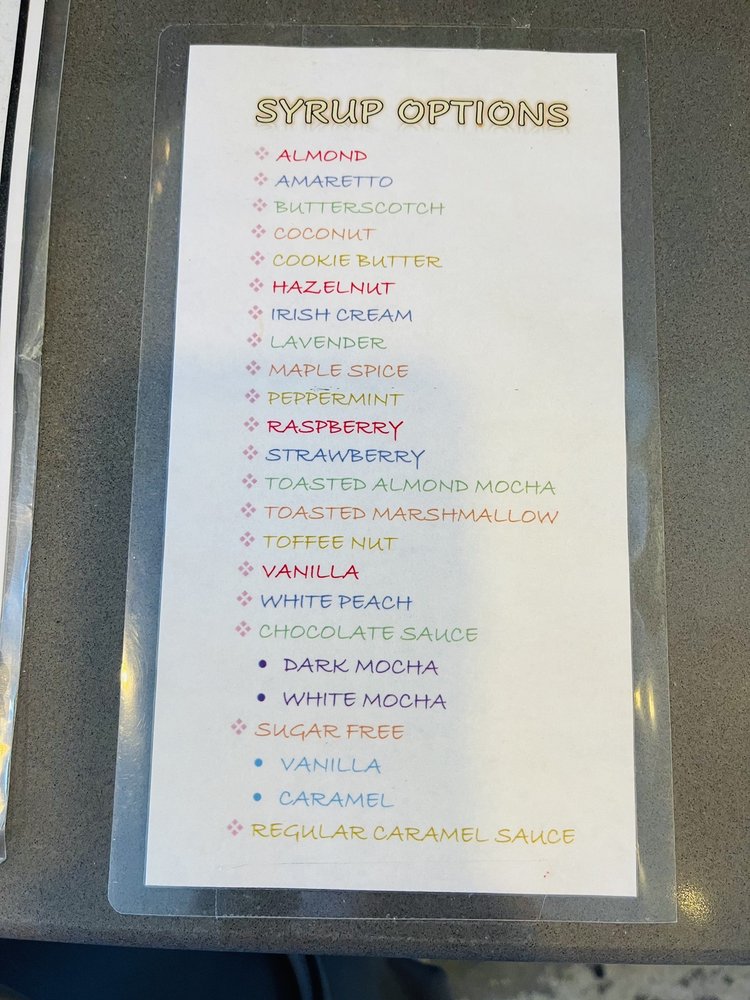 SYRUP OPTIONS
ALMOND
AMARETTO
BUTTERSCOTCH
COCONUT
COOKIE BUTTER
HAZELNUT
IRISH CREAM
LAVENDER
MAPLE SPICE
PEPPERMINT
RASPBERRY
STRAWBERRY
TOASTED ALMOND MOCHA
TOASTED MARSHMALLOW
TOFFEE NUT
VANILLA
WHITE PEACH
CHOCOLATE SAUCE
DARK MOCHA
WHITE MOCHA
SUGAR FREE
VANILLA
CARAMEL
REGULAR CARAMEL SAUCE